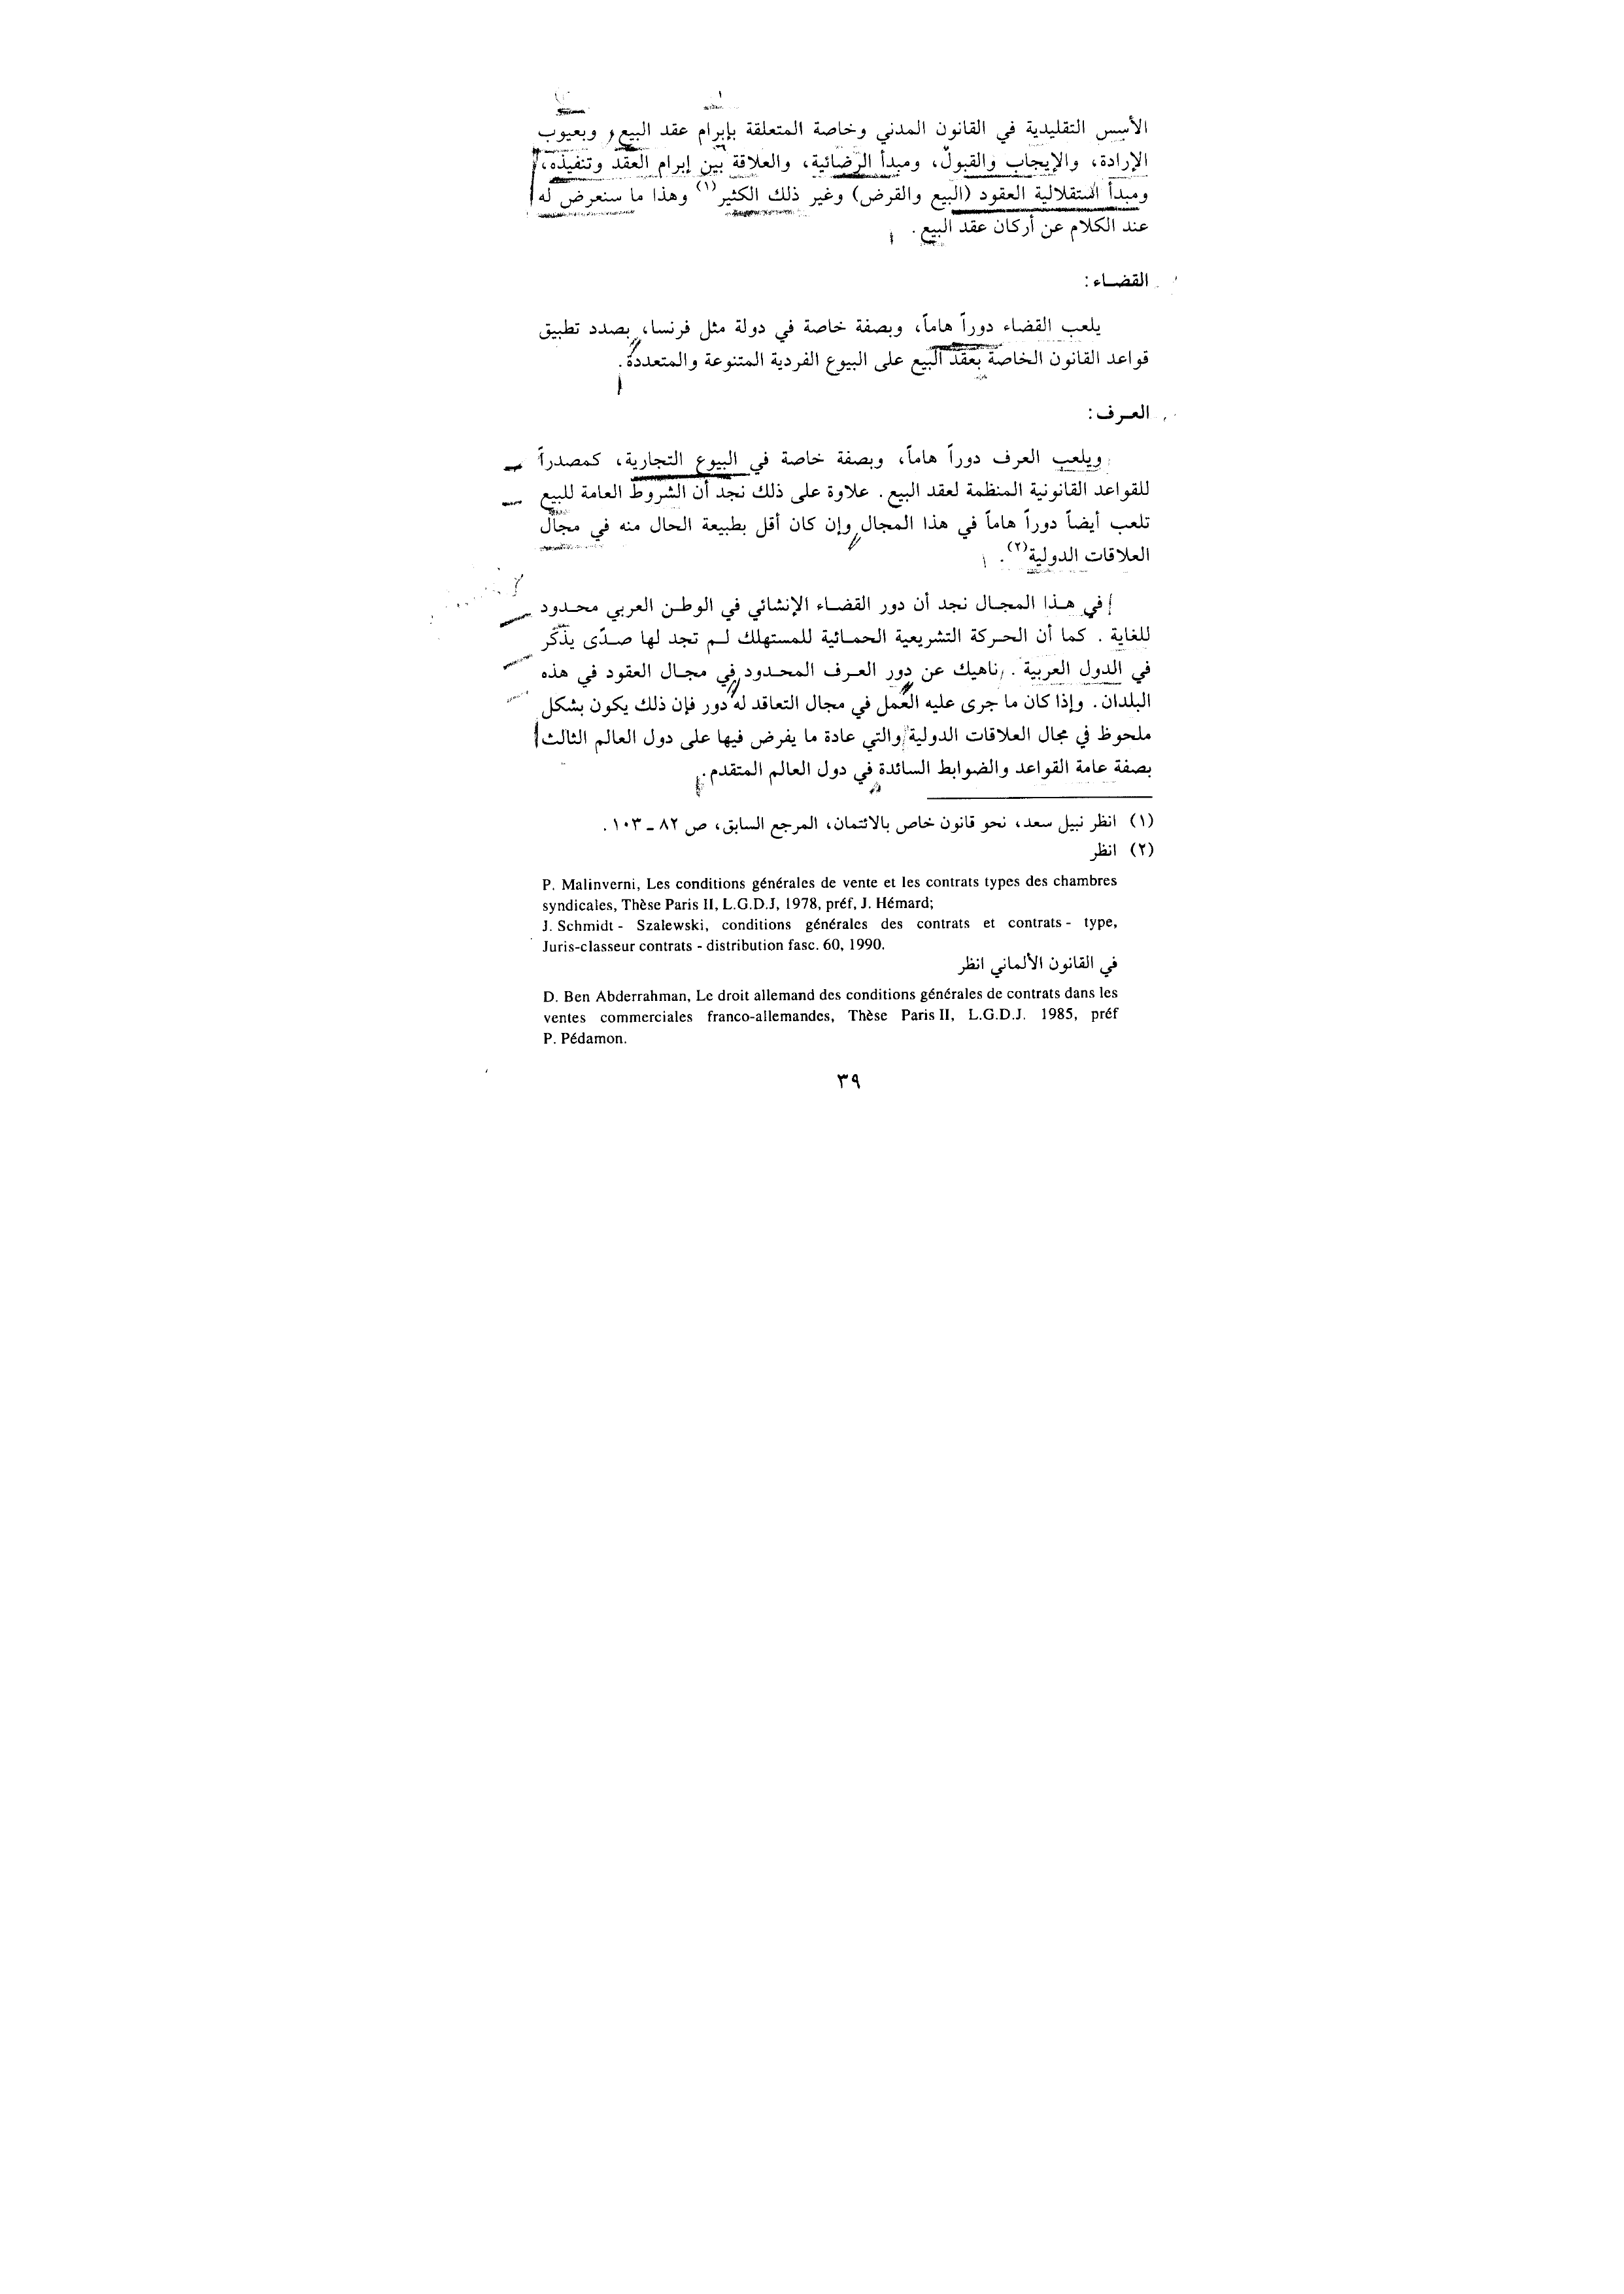 الأسس التقليدية في القانون المدني وخاصة المتعلقة بإبرام عقد البيع، وبعيوب
الإرادة، والإيجاب والقبول، ومبدأ الرضائية، والعلاقة بين إبرام العقد وتنفيذه،
ومبدأ استقلالية العقود (البيع والقرض) وغير ذلك الكثير(١) وهذا ما سنعرض له
عند الكلام عن أركان عقد البيع.
القضاء:
يلعب القضاء دوراً هاماً، وبصفة خاصة في دولة مثل فرنسا، بصدد تطبيق
قواعد القانون الخاصة بعقد البيع على البيوع الفردية المتنوعة والمتعددة.
العرف:
ويلعب العرف دوراً هاماً، وبصفة خاصة في البيوع التجارية، كمصدراً
للقواعد القانونية المنظمة لعقد البيع. علاوة على ذلك نجد أن الشروط العامة للبيع
تلعب أيضاً دوراً هاماً في هذا المجال وإن كان أقل بطبيعة الحال منه في مجال
العلاقات الدولية(٢).
في هذا المجال نجد أن دور القضاء الإنشائي في الوطن العربي محدود
للغاية. كما أن الحركة التشريعية الحمائية للمستهلك لم تجد لها صدّى يذكر
في الدول العربية. ناهيك عن دور العرف المحدود في مجال العقود في هذه
البلدان. وإذا كان ما جرى عليه العمل في مجال التعاقد له دور فإن ذلك يكون بشكل
ملحوظ في مجال العلاقات الدولية والتي عادة ما يفرض فيها على دول العالم الثالث
بصفة عامة القواعد والضوابط السائدة في دول العالم المتقدم.
(١) انظر نبيل سعد، نحو قانون خاص بالائتمان، المرجع السابق، ص ٨٢ ـ ١٠٣.
(٢) انظر
P. Malinverni, Les conditions générales de vente et les contrats types des chambres
syndicales, Thèse Paris II, L.G.D.J, 1978, préf, J. Hémard;
J. Schmidt - Szalewski, conditions générales des contrats et contrats - type,
Juris-classeur contrats - distribution fasc. 60, 1990.
في القانون الألماني انظر
D. Ben Abderrahman, Le droit allemand des conditions générales de contrats dans les
ventes commerciales franco-allemandes, Thèse Paris II, L.G.D.J. 1985, préf
P. Pédamon.
٣٩